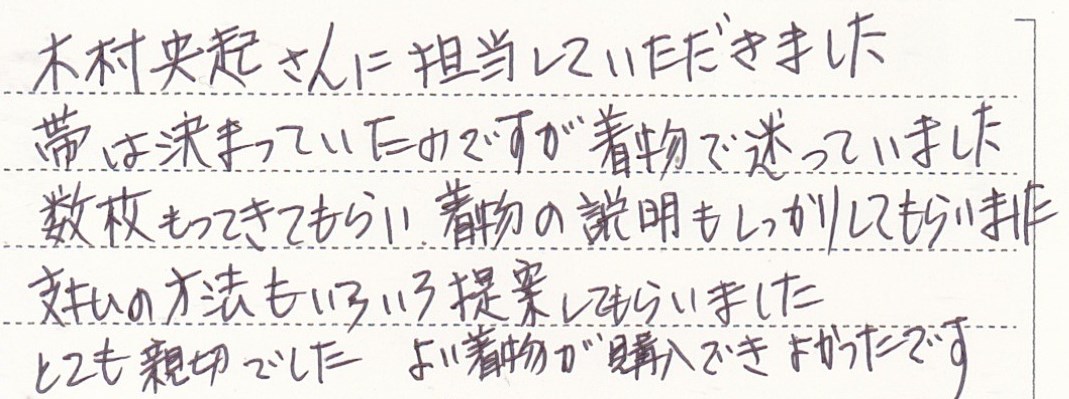 木村央起さんに担当していただきました
帯は決まっていたのですが着物で迷っていました
数枚もってきてもらい 着物の説明もしっかりしてもらいました
支払いの方法もいろいろ提案してもらいました
とても親切でした よい着物が購入できよかったです